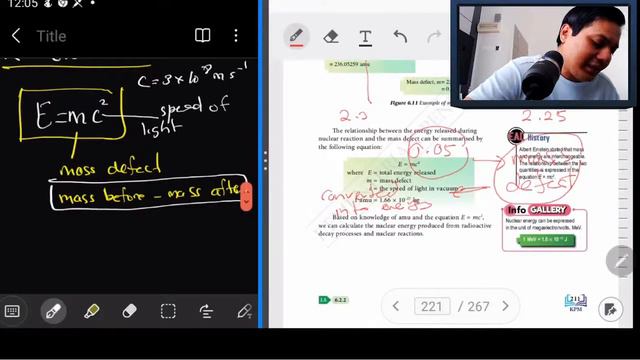 12:05
Title
C = 3 × 10⁸ m s⁻¹
E=mc²
speed of
light
mass defect
mass before - mass after
= 236.05259 amu
Mass defect, m
Figure 6.11 Example of
The relationship between the energy released during
nuclear reaction and the mass defect can be summarised by
the following equation:
E = mc²
where E = total energy released
m = mass defect
c = the speed of light in vacuum
1 amu = 1.66 × 10⁻²⁷ kg
Based on knowledge of amu and the equation E = mc²,
we can calculate the nuclear energy produced from radioactive
decay processes and nuclear reactions.
2.25
0.05
defect
converted
into energy
History
Albert Einstein stated that mass
and energy are interchangeable.
The relationship between the two
quantities is expressed in the
equation E = mc².
Info GALLERY
Nuclear energy can be expressed
in the unit of megaelectronvolts, MeV.
1 MeV = 1.6 × 10⁻¹³ J
6.2.2
221 / 267
211
KPM